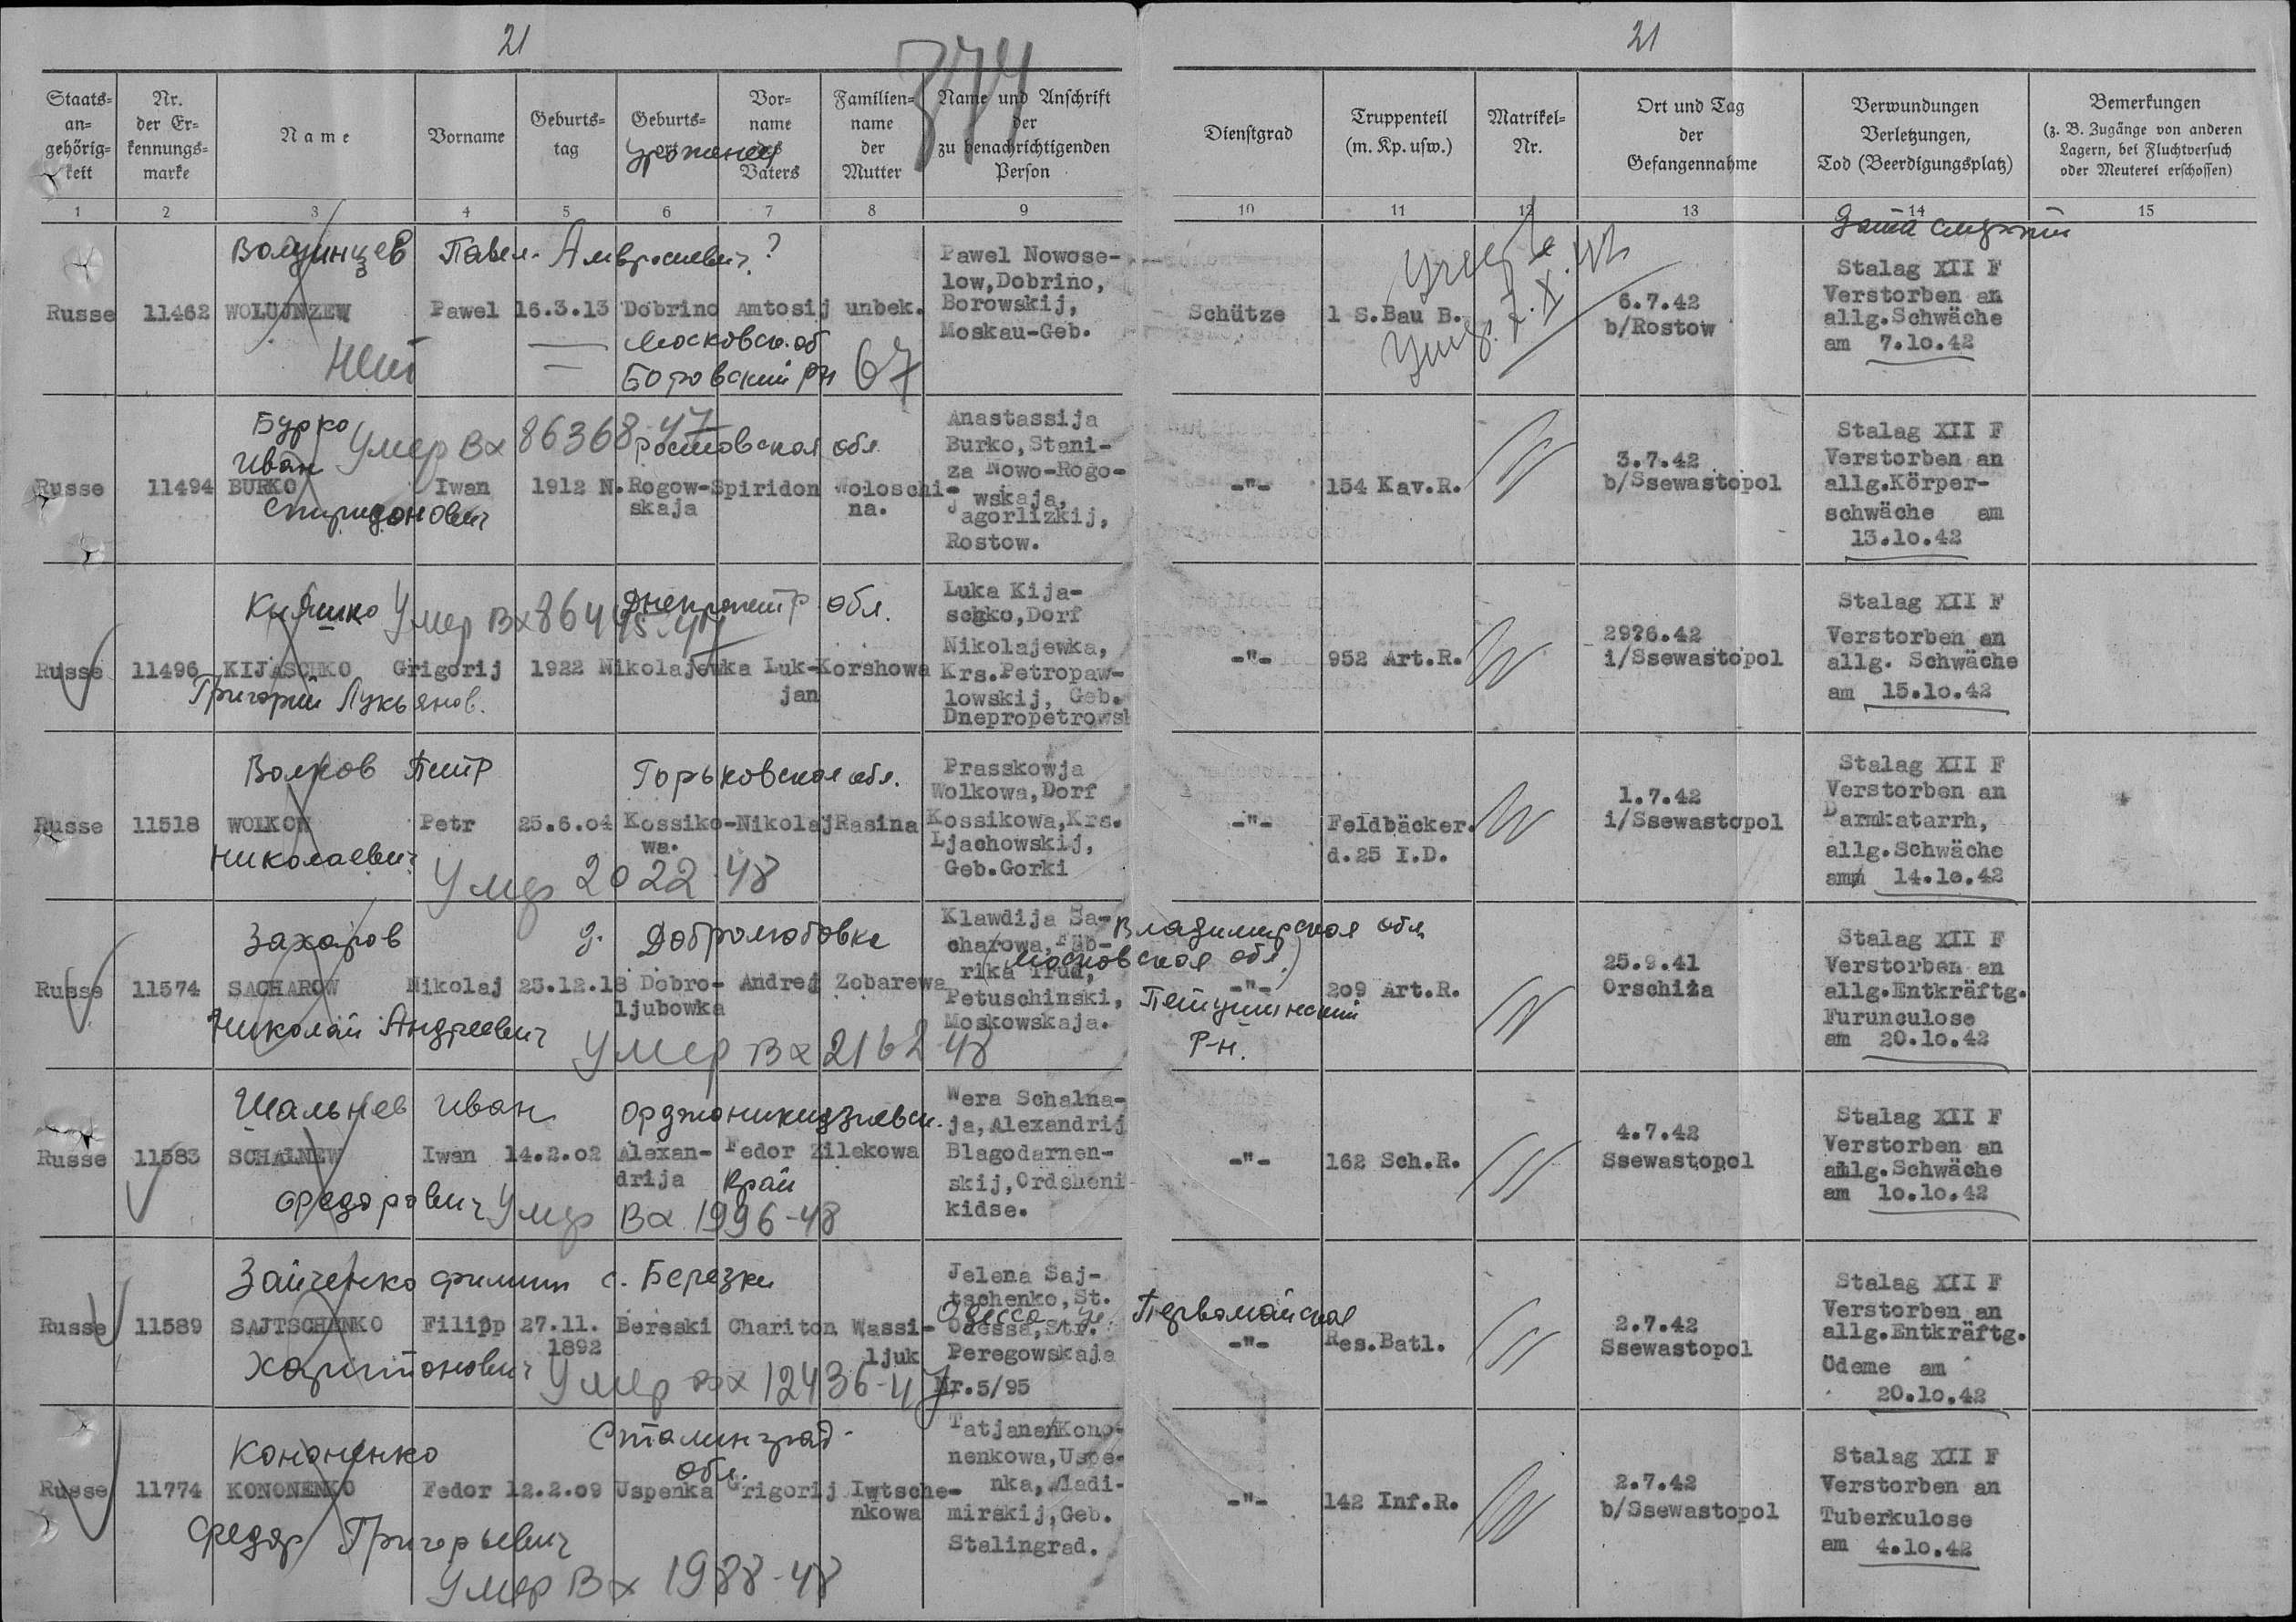 21
21
374
Staats-
an-
gehörig-
keit
Nr.
der Er-
kennungs-
marke
Name
Vorname
Geburts-
tag
Geburts-
ort
уроженец
Vor-
name
des
Vaters
Familien-
name
der
Mutter
Name und Anschrift
der
zu benachrichtigenden
Person
Dienstgrad
Truppenteil
(m. Kp. usw.)
Matrikel-
Nr.
Ort und Tag
der
Gefangennahme
Verwundungen
Verletzungen,
Tod (Beerdigungsplatz)
Bemerkungen
(z. B. Zugänge von anderen
Lagern, bei Fluchtversuch
oder Meuterei erschossen)
1 2 3 4 5 6 7 8 9 10 11 12 13 14 15
Дата смерти
Волуинцев Павел Амвросиевич ?
Russe 11462 WOLUJNZEW Pawel 16.3.13 Dobrino Amtosij unbek.
Московск. об
Боровский рн 67
Pawel Nowose-
low, Dobrino,
Borowskij,
Moskau-Geb.
Schütze 1 S.Bau B.
6.7.42
b/Rostow
Stalag XII F
Verstorben an
allg.Schwäche
am 7.10.42
Бурко Умер Вх 86368-47 Ростовская обл
Иван
Russe 11494 BURKO Iwan 1912 N.Rogow-Spiridon Woloschi-
skaja na.
Спиридонович
Anastassija
Burko, Stani-
za Nowo-Rogo-
wskaja,
Jagorlizkij,
Rostow.
-"- 154 Kav.R.
3.7.42
b/Ssewastopol
Stalag XII F
Verstorben an
allg.Körper-
schwäche am
13.10.42
Кияшко Умер Вх 86445-47 Днепропетр обл.
Russe 11496 KIJASCHKO Grigorij 1922 Nikolajewka Luk-Korshowa
jan
Григорий Лукьянов.
Luka Kija-
schko, Dorf
Nikolajewka,
Krs.Petropaw-
lowskij, Geb.
Dnepropetrowsk
-"- 952 Art.R.
29?6.42
i/Ssewastopol
Stalag XII F
Verstorben an
allg. Schwäche
am 15.10.42
Волков Петр Горьковская обл.
Russe 11518 WOLKOW Petr 25.6.04 Kossiko-Nikolaj Rasina
wa.
Николаевич
Умер 2022-48
Prasskowja
Wolkowa, Dorf
Kossikowa, Krs.
Ljachowskij,
Geb.Gorki
-"- Feldbäcker.
d.25 I.D.
1.7.42
i/Ssewastopol
Stalag XII F
Verstorben an
Darmkatarrh,
allg.Schwäche
am 14.10.42
Захаров д. Добролюбовка
Russe 11574 SACHAROW Nikolaj 25.12.18 Dobro- Andrej Zobarewa
ljubowka
Николай Андреевич
Умер Вх 2162 48
Klawdija Sa-
charowa, Fab-
rika Trud,
Petuschinski,
Moskowskaja.
Владимирская обл
(Московская обл.)
Петушинский
р-н.
-"- 209 Art.R.
25.9.41
Orschiza
Stalag XII F
Verstorben an
allg.Entkräftg.
Furunculose
am 20.10.42
Шальнев Иван Орджоникидзевск.
Russe 11583 SCHALNEW Iwan 14.2.02 Alexan- Fedor Zilekowa
drija край
Федорович Умер Вх 1996-48
Wera Schalna-
ja, Alexandrij
Blagodarnen-
skij, Ordsheni-
kidse.
-"- 162 Sch.R.
4.7.42
Ssewastopol
Stalag XII F
Verstorben an
allg.Schwäche
am 10.10.42
Зайченко Филипп с. Березки
Russe 11589 SAJTSCHENKO Filipp 27.11. Bereski Chariton Wassi-
1892 ljuk
Харитонович Умер Вх 12436-47
Jelena Saj-
tschenko, St.
Odessa, Str.
Peregowskaja
Nr.5/95
Одесса ул Первомайская
-"- Res.Batl.
2.7.42
Ssewastopol
Stalag XII F
Verstorben an
allg.Entkräftg.
Ödeme am
20.10.42
Кононенко Сталинград-
обл.
Russe 11774 KONONENKO Fedor 12.2.09 Uspenka Grigorij Iwtsche-
nkowa
Федор Григорьевич
Умер Вх 1988-48
Tatjana Kono-
nenkowa, Uspe-
nka, Wladi-
mirskij, Geb.
Stalingrad.
-"- 142 Inf.R.
2.7.42
b/Ssewastopol
Stalag XII F
Verstorben an
Tuberkulose
am 4.10.42